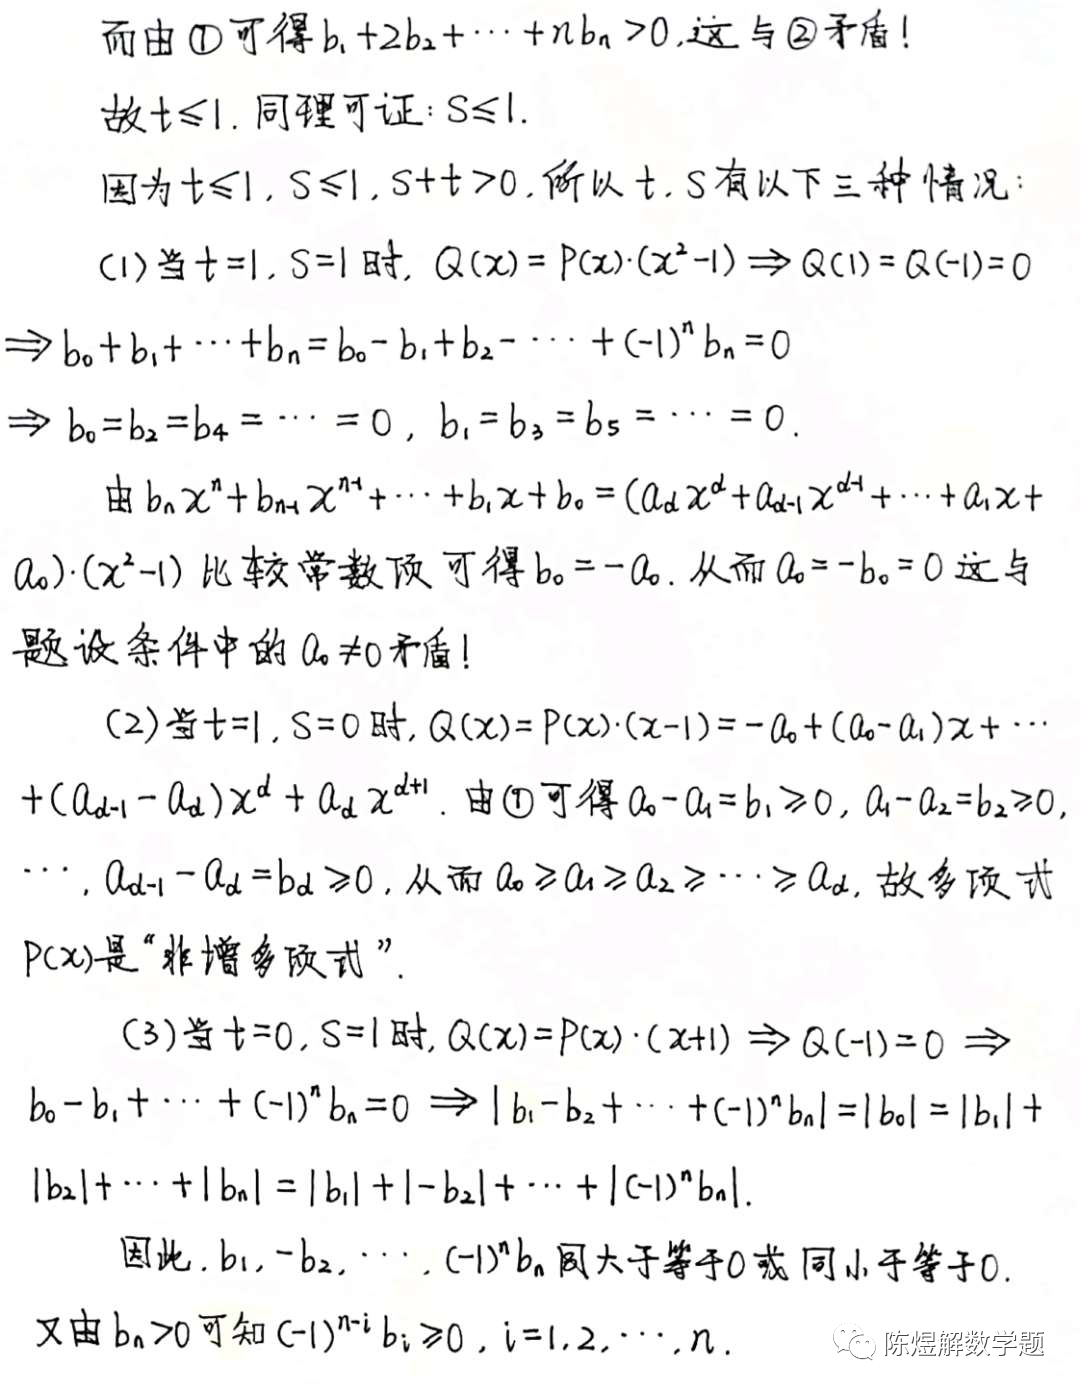 而由①可得b₁+2b₂+⋯+nbₙ>0,这与②矛盾!
故t≤1. 同理可证: S≤1.
因为t≤1, S≤1, S+t>0, 所以t, S有以下三种情况:
(1)当t=1, S=1时, Q(x)=P(x)·(x²-1)⇒Q(1)=Q(-1)=0
⇒b₀+b₁+⋯+bₙ=b₀-b₁+b₂-⋯+(-1)ⁿbₙ=0
⇒b₀=b₂=b₄=⋯=0, b₁=b₃=b₅=⋯=0.
由bₙxⁿ+bₙ₋₁xⁿ⁻¹+⋯+b₁x+b₀=(a_d x^d+a_{d-1}x^{d-1}+⋯+a₁x+
a₀)·(x²-1)比较常数项可得b₀=-a₀. 从而a₀=-b₀=0这与
题设条件中的a₀≠0矛盾!
(2)当t=1, S=0时, Q(x)=P(x)·(x-1)=-a₀+(a₀-a₁)x+⋯
+(a_{d-1}-a_d)x^d+a_d x^{d+1}. 由①可得a₀-a₁=b₁≥0, a₁-a₂=b₂≥0,
⋯, a_{d-1}-a_d=b_d≥0, 从而a₀≥a₁≥a₂≥⋯≥a_d, 故多项式
P(x)是“非增多项式”.
(3)当t=0, S=1时, Q(x)=P(x)·(x+1)⇒Q(-1)=0⇒
b₀-b₁+⋯+(-1)ⁿbₙ=0⇒|b₁-b₂+⋯+(-1)ⁿbₙ|=|b₀|=|b₁|+
|b₂|+⋯+|bₙ|=|b₁|+|-b₂|+⋯+|(-1)ⁿbₙ|.
因此, b₁, -b₂, ⋯, (-1)ⁿbₙ同大于等于0或同小于等于0.
又由bₙ>0可知(-1)ⁿ⁻ⁱbᵢ≥0, i=1,2,⋯,n.
陈煜解数学题